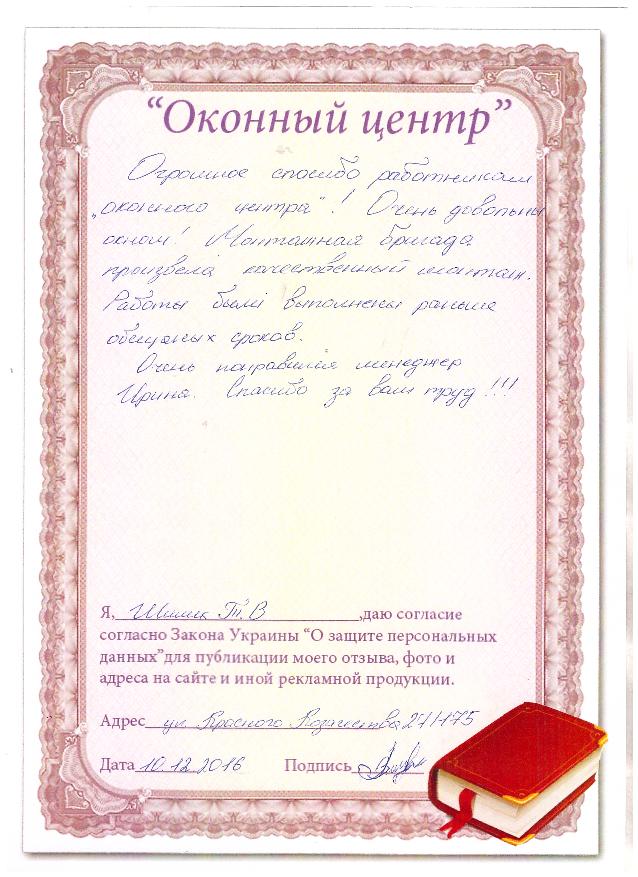 “Оконный центр”
Огромное спасибо работникам
„оконного центра“! Очень довольны
окном! Монтажная бригада
произвела качественный монтаж.
Работы были выполнены раньше
обещаных сроков.
Очень понравился менеджер
Ирина. Спасибо за ваш труд!!!
Я, Т. В ,даю согласие
согласно Закона Украины “О защите персональных
данных”для публикации моего отзыва, фото и
адреса на сайте и иной рекламной продукции.
Адрес ул Красного Казачества
Дата 10.12.2016 Подпись